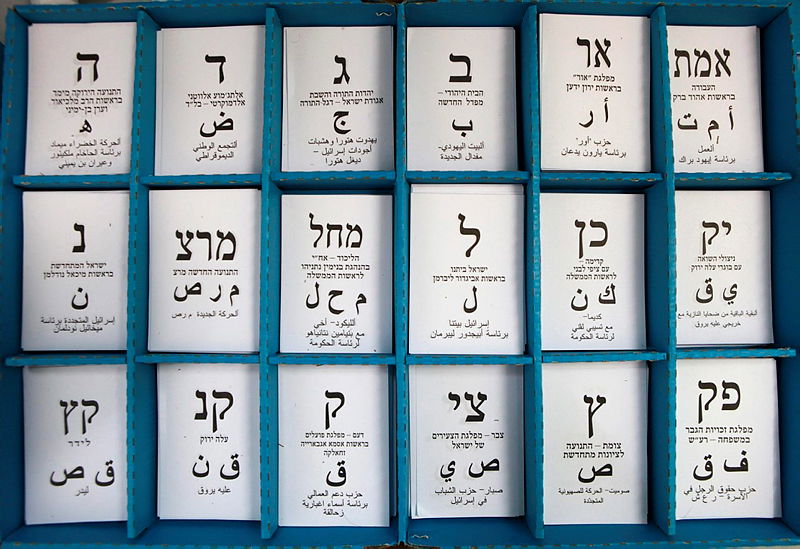 אמת
העבודה
בראשות אהוד ברק
أ م ت
العمل
برئاسة إيهود براك
אר
מפלגת "אור"
בראשות ירון ידען
أ ر
حزب "أور"
برئاسة يارون يدعان
ב
הבית היהודי -
מפדל החדשה
ب
البيت اليهودي-
مفدال الجديدة
ג
יהדות התורה והשבת
אגודת ישראל - דגל התורה
ج
يهدوت هتورا وهشبات
أجودات إسرائيل -
ديغل هتورا
ד
אלתג'מוע אלווטני
אלדמוקרטי - בל"ד
ض
التجمع الوطني
الديموقراطي
ה
התנועה הירוקה מימד
בראשות הרב מלכיאור
וערן בן-ימיני
ه
الحركة الخضراء ميماد
برئاسة الحاخام ملكيئور
وعيران بن يميني
יק
ניצולי השואה
עם בוגרי עלה ירוק
ي ق
البقية الباقية من ضحايا النازية مع
خريجي عليه يروق
כן
קדימה -
עם ציפי לבני
לראשות הממשלה
ك ن
كديما-
مع تسيبي لفني
لرئاسة الحكومة
ל
ישראל ביתנו
בראשות אביגדור ליברמן
ل
إسرائيل بيتنا
برئاسة أبيجدور ليبرمان
מחל
הליכוד - אח"י
בהנהגת בנימין נתניהו
לראשות הממשלה
م ح ل
الليكود- أحي
مع بنيامين نتانياهو
لرئاسة الحكومة
מרצ
התנועה החדשה מרצ
م ر ص
الحركة الجديدة م رص
נ
ישראל המתחדשת
בראשות מיכאל נודלמן
ن
إسرائيل المتجددة برئاسة
ميخائيل نودلمان
פק
מפלגת זכויות הגבר
במשפחה - רע"ש
ف ق
حزب حقوق الرجل في
الأسرة - ر ع ش
ץ
צומת - התנועה
לציונות מתחדשת
ص
تسوميت- الحركة للصهيونية
المتجددة
צי
צבר - מפלגת הצעירים
של ישראל
ص ي
صبار- حزب الشباب
في إسرائيل
ק
דעם - מפלגת פועלים
בראשות אסמא אגבארייה
זחאלקה
ق
حزب دعم العمالي
برئاسة أسماء اغبارية
زحالقة
קנ
עלה ירוק
ق ن
عليه يروق
קץ
לידר
ق ص
ليدر